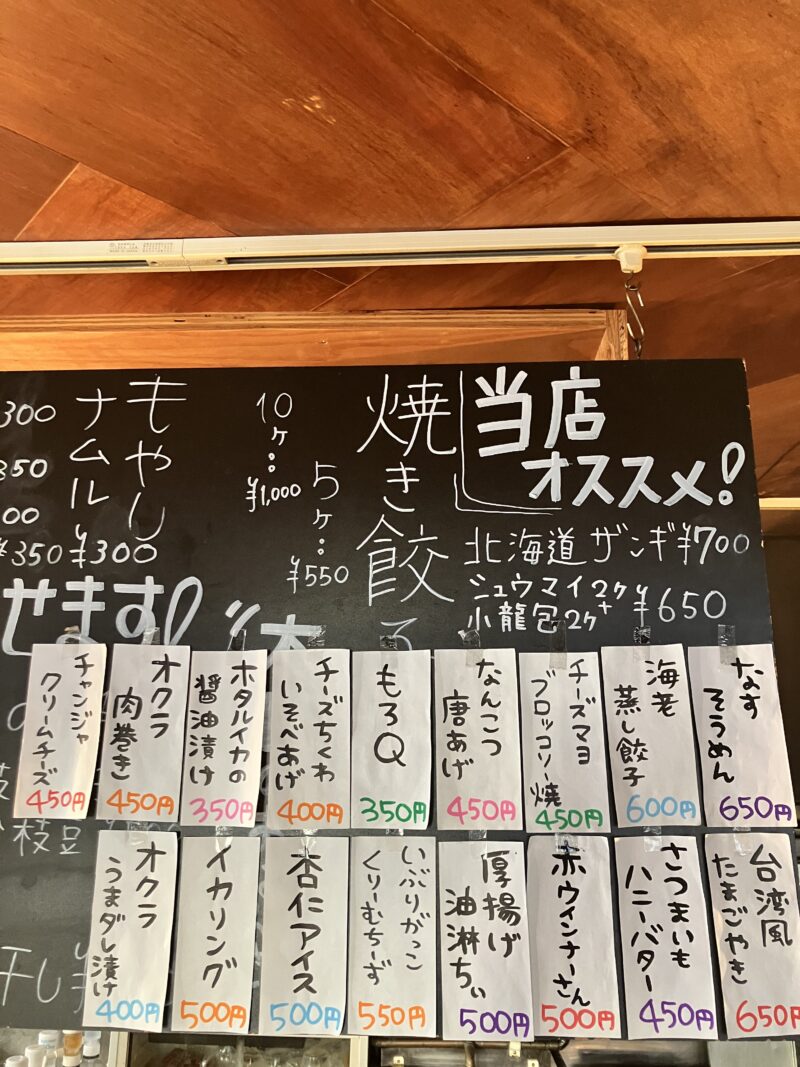 当店
オススメ!
北海道ザンギ¥700
シュウマイ2ヶ+
小龍包2ヶ
¥650
焼き餃
5ヶ:¥550
10ヶ:¥1,000
もやし
ナムル
¥300
300
350
00
¥350
せます!
なす
そうめん
650円
海老
蒸し餃子
600円
チーズマヨ
ブロッコリー焼
450円
なんこつ
唐あげ
450円
もろQ
350円
チーズちくわ
いそべあげ
400円
ホタルイカの
醤油漬け
350円
オクラ
肉巻き
450円
チャンジャ
クリームチーズ
450円
台湾風
たまごやき
650円
さつまいも
ハニーバター
450円
赤ウインナーさん
500円
厚揚げ
油淋ちぃ
500円
いぶりがっこ
くりーむちーず
550円
杏仁アイス
500円
イカリング
500円
オクラ
うまダし漬け
400円
枝豆
干し